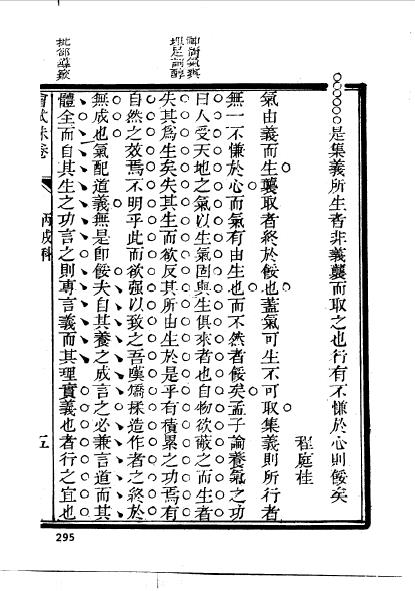 是集義所生者非義襲而取之也行有不慊於心則餒矣
程庭桂
氣由義而生襲取者終於餒也蓋氣可生不可取集義則所行者
無一不慊於心而氣有由生也而不然者餒矣孟子論養氣之功
曰人受天地之氣以生氣固與生俱來者也自物欲蔽之而生者
失其爲生矣失其生而欲反其所由生於是乎有積累之功焉有
自然之效焉不明乎此而欲强以致之吾嘆矯揉造作者之終於
無成也氣配道義無是即餒夫自其養之成言之必兼言道而其
體全而自其生之功言之則專言義而其理實義也者行之宜也
理足詞醇
批郤導窾
會試硃卷
丙戌科
五
295